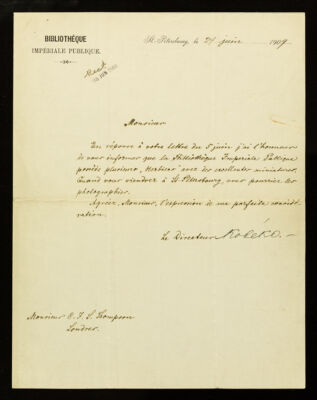 BIBLIOTHÈQUE
IMPÉRIALE PUBLIQUE.
St. Pétersbourg, le 27 juin 1909
JUN 1909
Monsieur
En réponse à votre lettre du 5 juin j'ai l'honneur
de vous informer que la Bibliothèque Impériale Publique
possède plusieurs, avec des excellentes miniatures.
Quand vous viendrez à St. Pétersbourg, vous pourriez les
photographier.
Agréez, Monsieur, l'expression de ma parfaite considé-
ration.
Le Directeur
Monsieur C. J. S. Thompson
Londres.